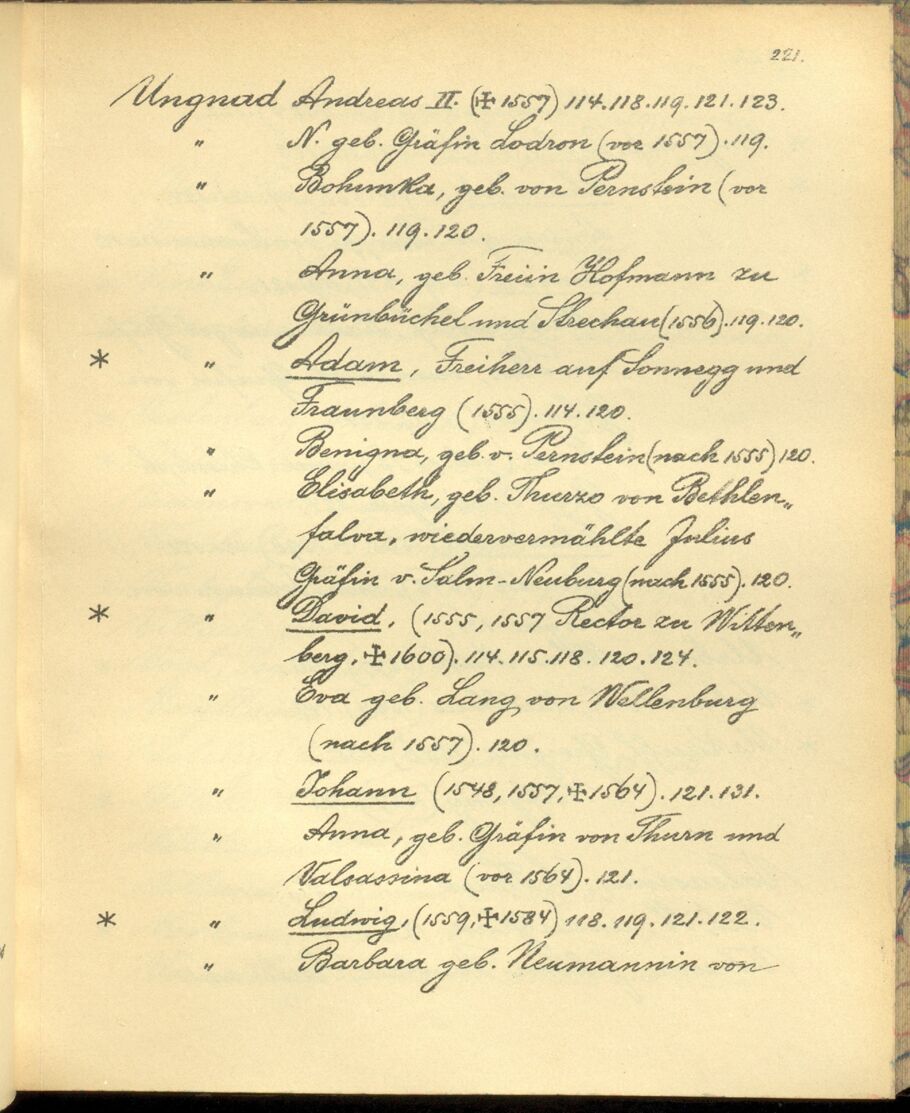 221.
Ungnad Andreas II. (✠ 1557) 114.118.119.121.123.
" N. geb. Gräfin Lodron (vor 1557).119.
" Bohunka, geb. von Pernstein (vor
1557). 119.120.
" Anna, geb. Freiin Hofmann zu
Grünbüchel und Strechau (1556).119.120.
* " Adam, Freiherr auf Sonnegg und
Fraunberg (1555).114.120.
" Benigna, geb. v. Pernstein (nach 1555) 120.
" Elisabeth, geb. Thurzo von Bethlen„
falva, wiedervermählte Julius
Gräfin v. Salm-Neuburg (nach 1555).120.
* " David, (1555, 1557 Rector zu Witten„
berg, ✠ 1600). 114.115.118.120.124.
" Eva geb. Lang von Wellenburg
(nach 1557). 120.
" Johann (1548, 1557, ✠ 1564). 121.131.
" Anna, geb. Gräfin von Thurn und
Valsassina (vor 1564). 121.
* " Ludwig, (1559, ✠ 1584) 118.119.121.122.
" Barbara geb. Neumannin von